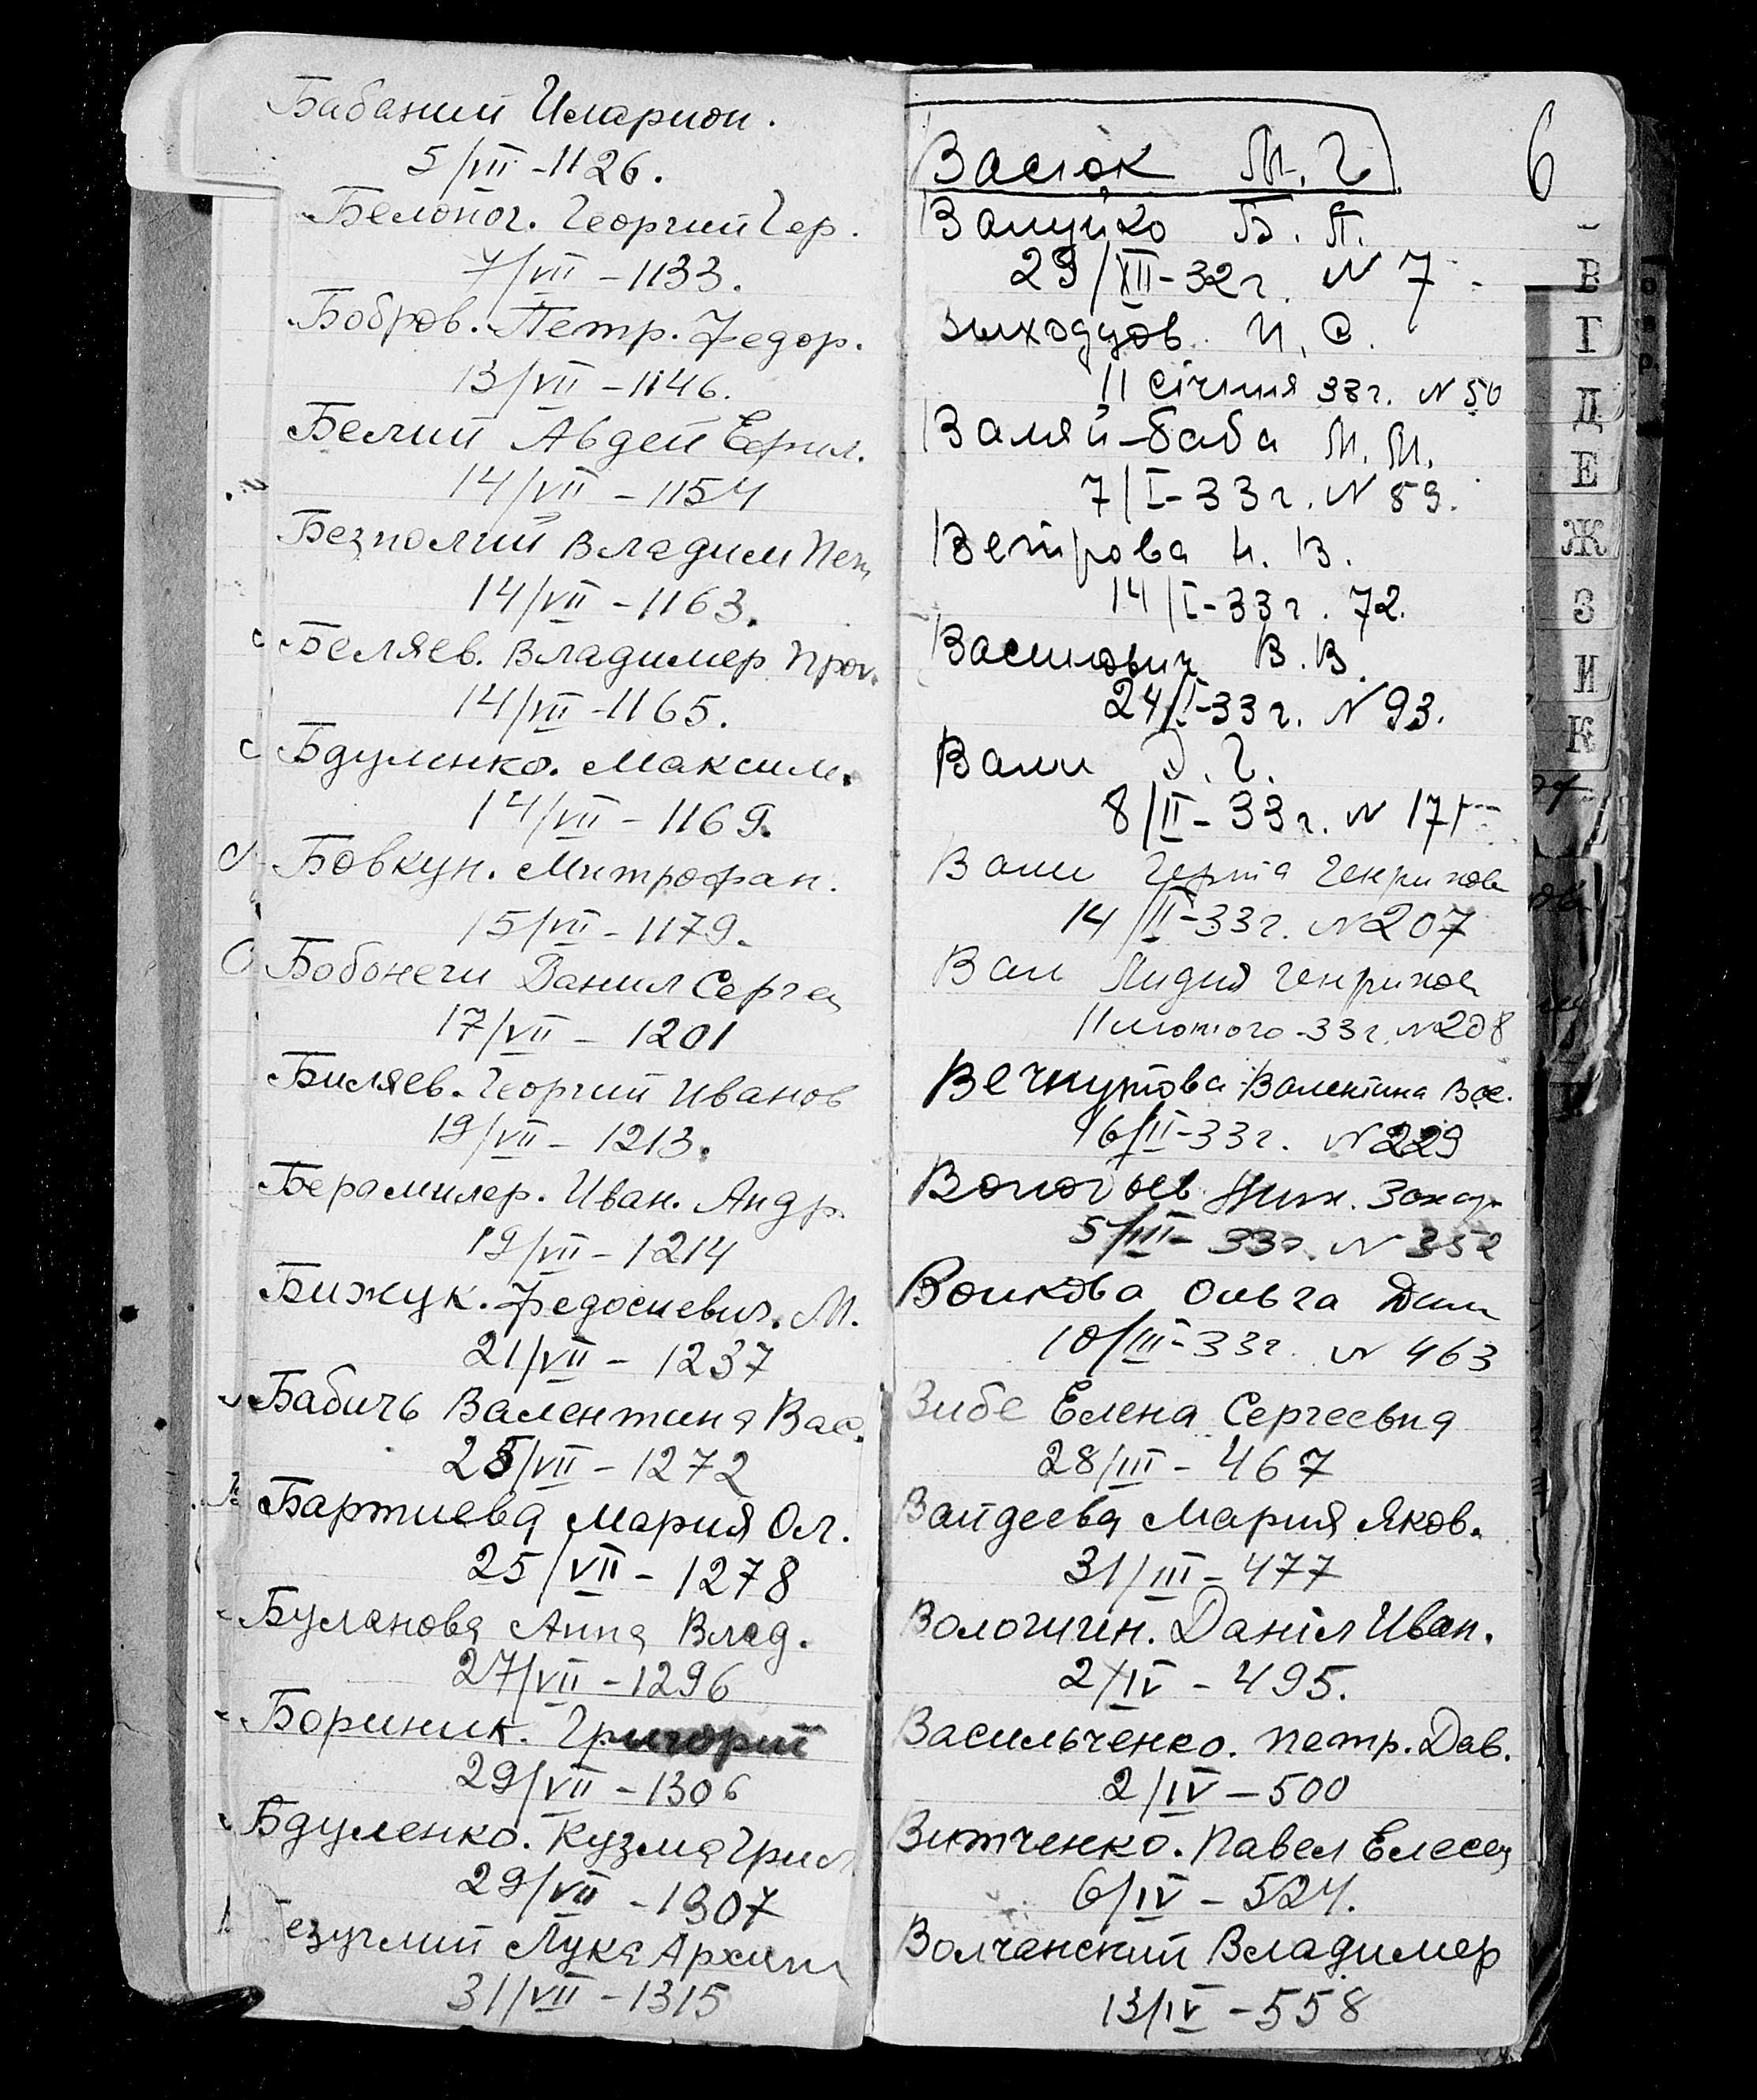 Бабаний Иларион.
5/VII - 1126.
Белоног. Георгий Гер.
7/VII - 1133.
Бобров. Петр. Федор.
13/VII - 1146.
Белий Авдей Ермил.
14/VII - 1154
Безполий Владим Пет
14/VII - 1163.
Беляев. Владимер Прок.
14/VII - 1165.
Бдуленко. Максим.
14/VII - 1169.
Бовкун. Митрофан.
15/VII - 1179.
Бобонеги Данил Серге
17/VII - 1201
Биляев. Георгий Иванов
19/VII - 1213.
Берамилер. Иван. Андр.
19/VII - 1214
Бижук. Федосиевич. М.
21/VII - 1237
Бабичь Валентина Вас.
25/VII - 1272
Бартиева Мария Ол.
25/VII - 1278
Буланова Анна Влад.
27/VII - 1296
Бориник. Григорий
29/VII - 1306
Бдуленко. Кузма Григ
29/VII - 1307
езуглий Лука Архип
31/VII - 1315
6
Васюк М. Г.
Валуйко Б. П.
29/XII-32г. N 7
Выходцов И. С.
11 січння 33г. N 50
Валяй-баба М. М.
7/I-33г. N 59.
Ветрова Н. В.
14/I-33г. 72.
Василович В. В.
24/I-33г. N 93.
Валл Э. Г.
8/II-33г. N 171
Валл Герта Генрихов
14/II-33г. N 207
Вал Лидия Генрихов
11 лютого-33г. N 208
Вечкутова Валентина Вас.
16/II-33г. N 229
Вологоев Мих. Захар
5/III-33г. N 352
Волкова Ольга Дан
10/III-33г. N 463
Зибе Елена Сергеевна
28/III - 467
Вайдеева Мария Яков.
31/III - 477
Вологигин. Даніл Иван.
2/IV - 495.
Васильченко. Петр. Дав.
2/IV - 500
Витченко. Павел Елесе
6/IV - 524.
Волчанский Владимер
13/IV - 558
В
Г
Д
Е
Ж
З
И
К